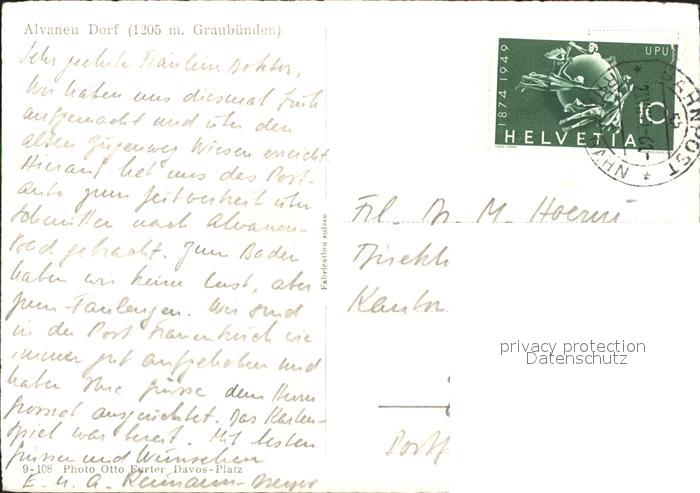 Alvaneu Dorf (1205 m. Graubünden)
Sehr geehrte Fräulein Doktor,
Wir haben uns diesmal früh
aufgemacht und über den
alten Zügenweg Wiesen erreicht.
Hierauf hat uns das Post-
auto zum Zeitvertreib über
Schmitten nach Alvaneu-
Bad gebracht. Zum Baden
haben wir keine Lust, aber
zum Faulenzen. Wir sind
in der Post Frauenkirch wie
immer gut aufgehoben und
haben Ihre Grüsse dem Herrn
ausgerichtet. Das Karten-
spiel war bereit. Mit besten
Grüssen und Wünschen
E. u. A.
9-108 Photo Otto Furter Davos-Platz
Fabrication suisse
1874-1949
UPU
10
HELVETIA
BAHNPOST
Frl. Dr. M.
Kanton
privacy protection
Datenschutz